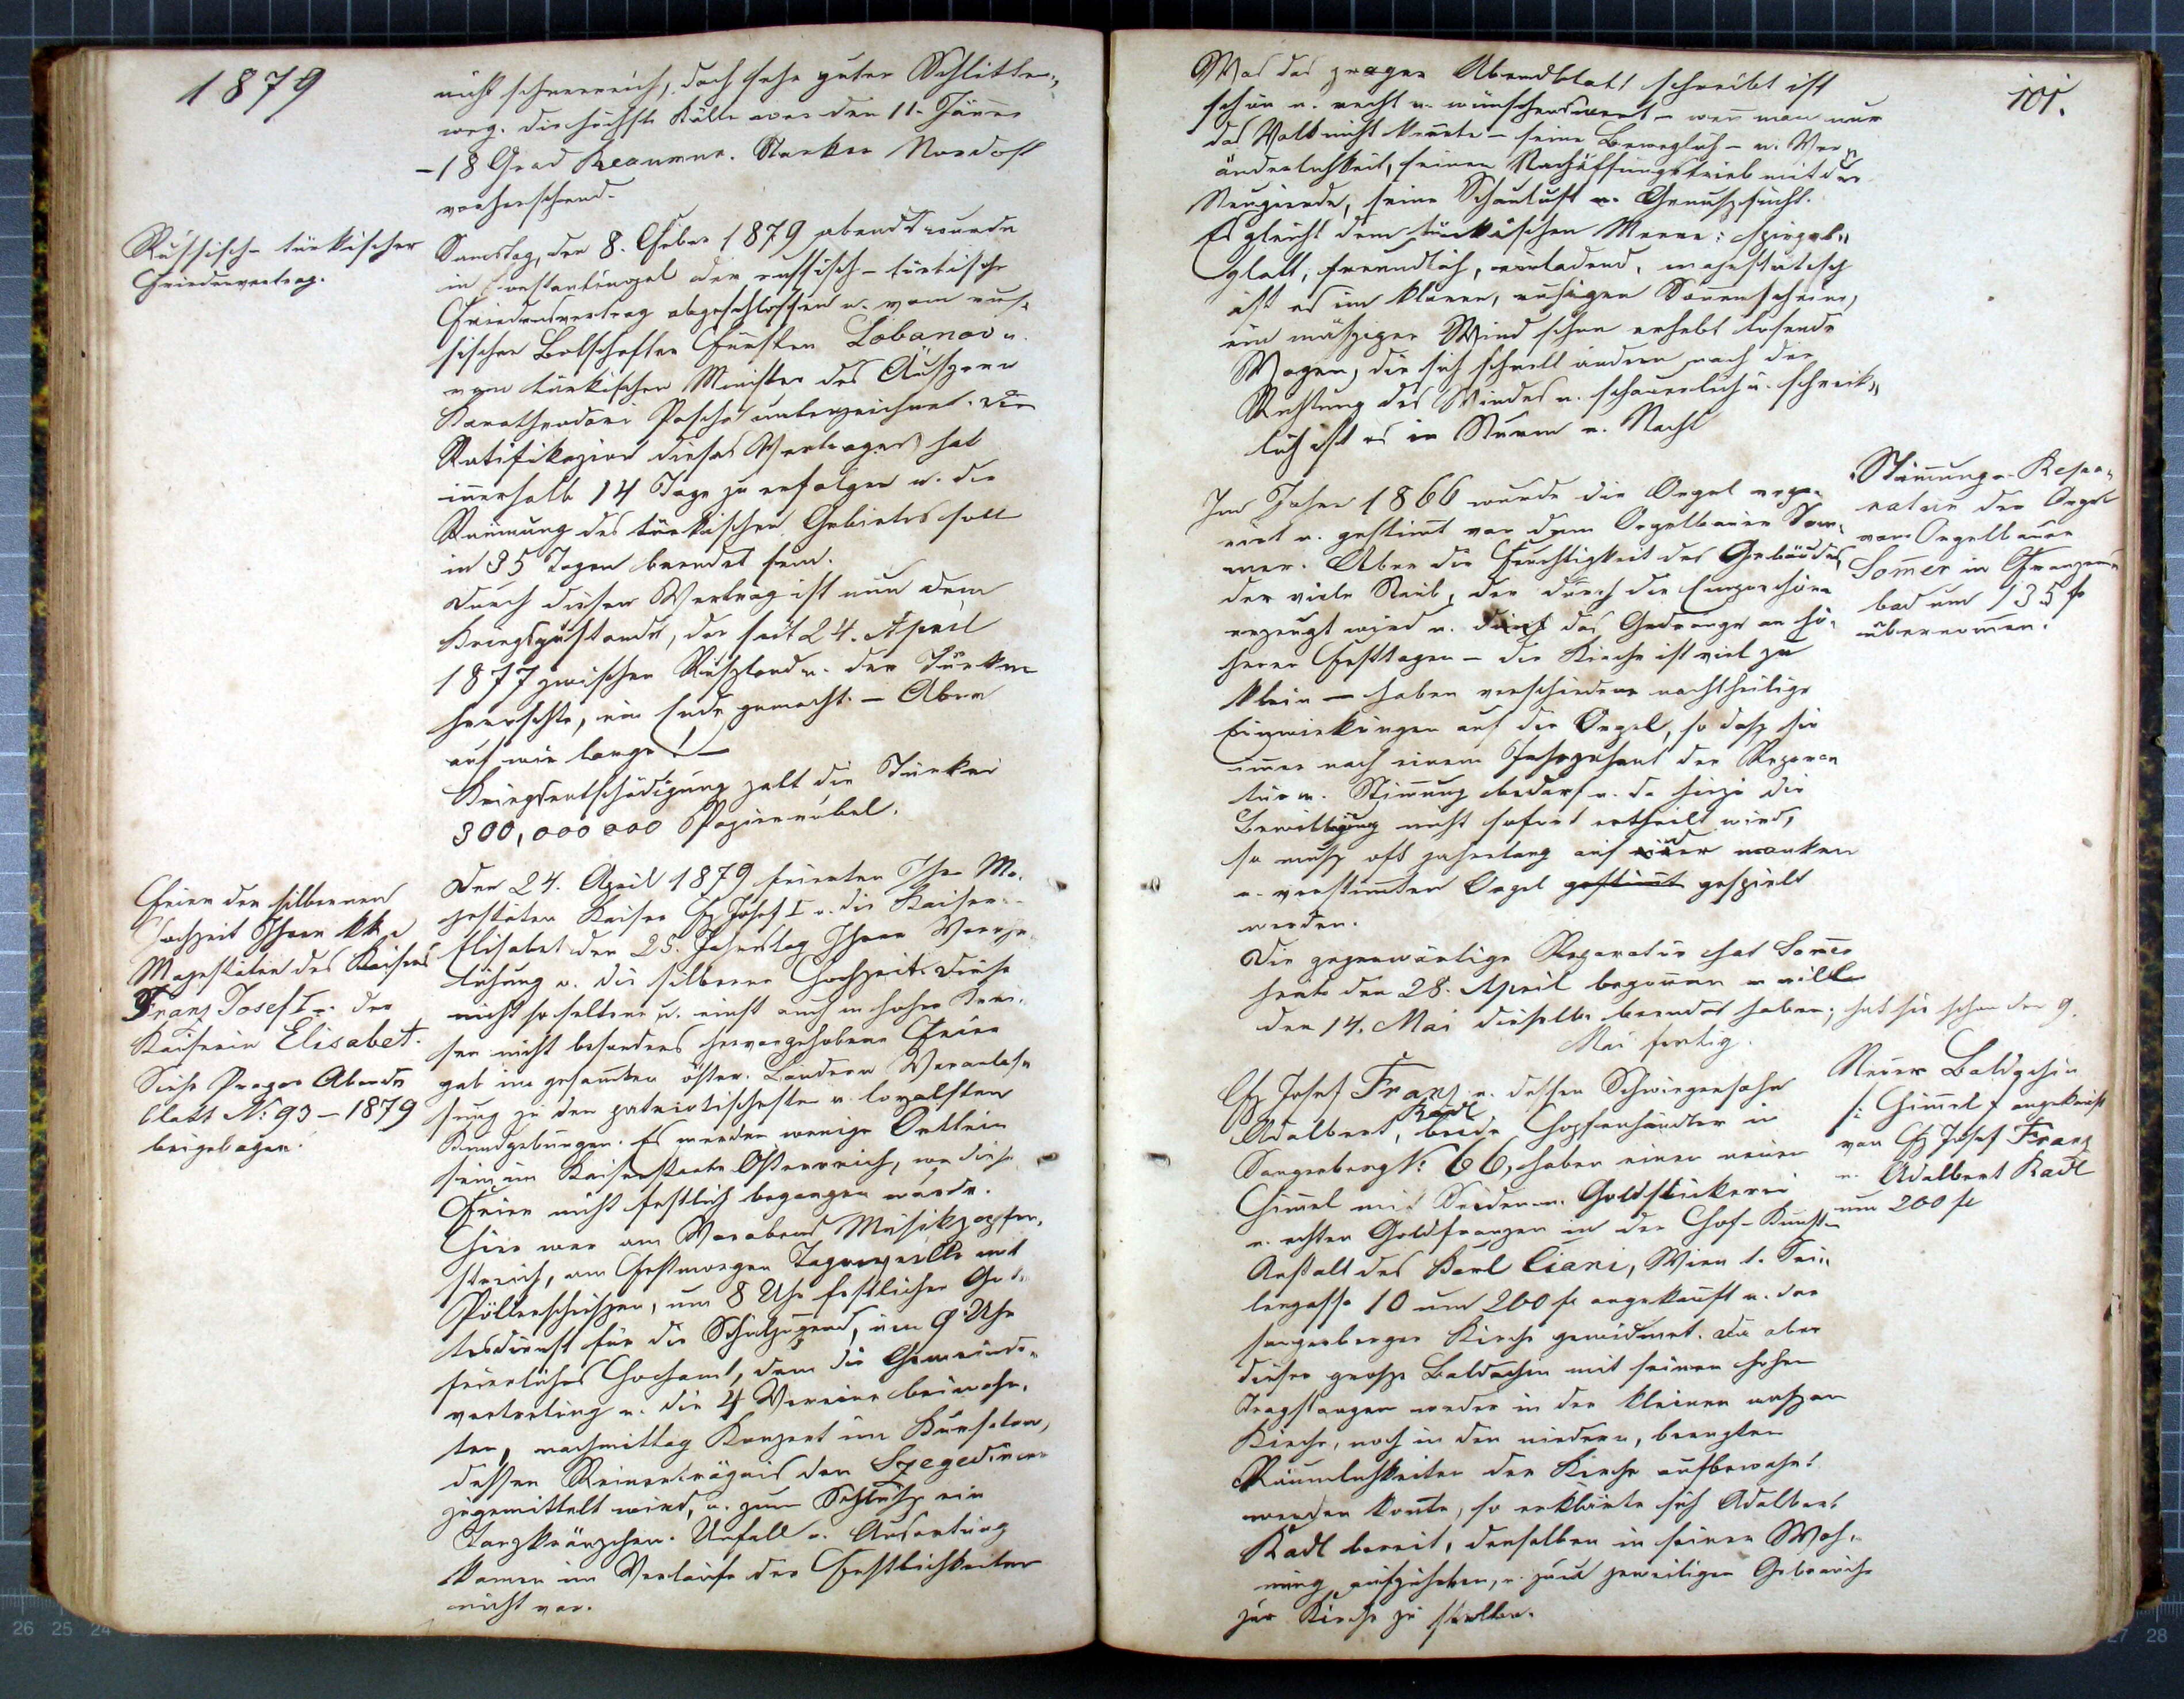 1879
nicht schneereich, doch sehr guter Schlitten„
weg. Die höchste Kälte war den 11. Jäner
-18 Grad Reaumur. Starker Nordost
vorherrschend.
Russisch-türkischer
Friedensvertrag.
Samstag, den 8. Feber 1879 abends wurde
in Constantinopel der russisch-türkische
Friedensvertrag abgeschlossen u. vom rus„
sischen Botschafter Fürsten Lobanov u.
vom türkischen Minister des Äußern
Karatheodori Pascha unterzeichnet. Die
Ratifikazion dieses Vertrages hat
innerhalb 14 Tage zu erfolgen u. die
Räumung des türkischen Gebietes soll
in 35 Tagen beendet sein.
Durch diesen Vertrag ist nun dem
Kriegszustande, der seit 24. April
1877 zwischen Rußland u. der Türken
herrschte, ein Ende gemacht. – Aber
auf wie lange! –
Kriegsentschädigung zalt die Türkei
300,000 000 Papierrubel.
Feier der silbernen
Hochzeit Ihrer kk.
Majestäten des Kaisers
Franz Josef I u. der
Kaiserin Elisabet.
Siehe Prager Abend„
blatt No: 93 – 1879
beigebogen.
Den 24. April 1879 feierten Ihre Ma„
jestäten Kaiser Fz Josef I u. die Kaiserin
Elisabet den 25. Jahrestag Ihrer Vermä„
lung u. die silberne Hochzeit. Diese
nicht so seltene u. einst auch in hohen Krei„
sen nicht besonders hervorgehobene Feier
gab im gesammten öster. Ländern Veranlas„
sung zu den patriotischesten u. loyalsten
Kundgebungen. Es werden wenige Örtlein
sein im Kaiserstaate Österreich, wo diese
Feier nicht festlich begangen würde.
Hier war am Vorabend Musikzapfen„
streich, am Festmorgen Tagreveille mit
Pöllerschüßen, um 8 Uhr festlicher Got„
tesdienst für die Schuljugend, um 9 Uhr
feierliches Hochamt, dem die Gemeinde„
vertretung u. die 4 Vereine beiwohn„
ten, nachmittag Konzert im Kursalon,
dessen Reinerträgnis den Szegedinern
zugemittelt wird, u. zum Schluße ein
Tanzkränzchen. Unfall o. Ausartung
kamen im Verlaufe der Festlichkeiten
nicht vor.
101.
Was das prager Abendblatt schreibt ist
schön u. recht u. wünschenswert – wenn man nur
das Volk nicht kennte – seine Beweglich- u. Ver„
änderlichkeit, seinen Nachäffungstrieb mit der
Neugierde, seine Schaulust u. Genußsucht.
Es gleicht dem türkischen Meere: spiegel„
glatt, freundlich, einladend, majestätisch
ist es im klaren, ruhigen Sonnenscheine,
ein mäßiger Wind schon erhebt tosende
Wogen, die sich schnell ändern nach der
Richtung des Windes u. schauerlich u. schreck„
lich ist es in Sturm u. Nacht
Stimmung u. Repa„
ratur der Orgel
vom Orgelbauer
Somer in Franzens„
bad um 135 fl
übernomen.
Im Jahre 1866 wurde die Orgel repa„
rirt u. gestimt von dem Orgelbauer Som„
mer. Aber die Feuchtigkeit des Gebäudes,
der viele Staub, der durch die Emporchöre
erzeugt wird u. durch das Gedränge an hö„
heren Festtagen – die Kirche ist viel zu
klein – haben verschiedene nachtheilige
Einwirkungen auf die Orgel, so daß sie
imer nach einem Jahrzehent der Repara„
tur u. Stimung bedarf u. da hiezu die
Bewilligung nicht sofort ertheilt wird,
so muß oft jahrelang auf einer kranken
u. verstimten Orgel gestimt gespielt
werden.
Die gegenwärtige Reparatur hat Somer
heute den 28. April begonnen u. will
den 14. Mai dieselbe beendet haben; hat sie schon den 9.
Mai fertig.
Neuer Baldachin
/: Himel :/ angekauft
von Fz Josef Franz
u. Adalbert Kadl
um 200 fl
Fz Josef Franz u. dessen Schwiegersohn
Adalbert Kadl, beide Hopfenhändler in
Sangerberg No: 66, haben einen neuen
Himel mit Seiden u. Goldstickerei
u. echten Goldfranzen in der Hof-Kunst„
Anstalt des Karl Giani, Wien 1. Sei„
lergasse 10 um 200 fl angekauft u. der
sangerberger Kirche gewidmet. Da aber
dieser große Baldachin mit seinen hohen
Tragstangen weder in der kleinen naßen
Kirche, noch in den niedern, beengten
Räumlichkeiten der Kirche aufbewahrt
werden konte, so erklärte sich Adalbert
Kadl bereit, denselben in seiner Woh„
nung aufzuheben, u. zum jeweiligen Gebrauche
zur Kirche zu stellen.